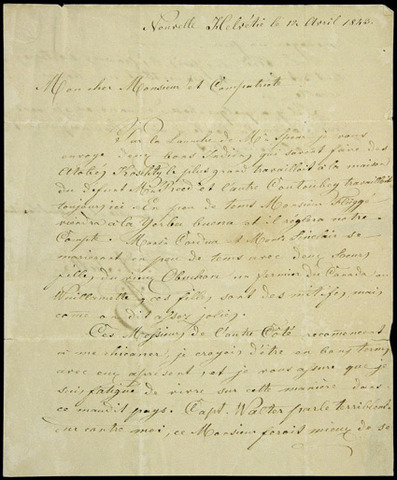 Nouvelle Helvétie le 12 Avril 1843.
Mon cher Monsieur et Compatriote
Sur la Lanche de Mr. Spear je vous
envoye deux bons Indiens, qui savent faire des
le plus grand travailloit à la maison
du defunt Mr. et l'autre travailloit
toujours ici. En peu de tems Monsieur Flügge
viendra à la Yerba buena et il reglera notre
Compte. Monsr. et Monsr. Sinclair se
marieront en peu de tems avec deux Soeurs,
filles du vieux un fermier du Canada au
Wuillamette, ces filles sont des mitifs, mais
come on dit assez jolies.
Ces Messieurs de l'autre Côté recomencent
à me chicaner, je croyois d'être en bons termes
avec eux apresent, et je vous assure que je
suis fatigué de vivre sur cette manière dans
ce maudit pays. Capt. Walter parle terriblement
sur contre moi, ce Monsieur feroit mieux de se